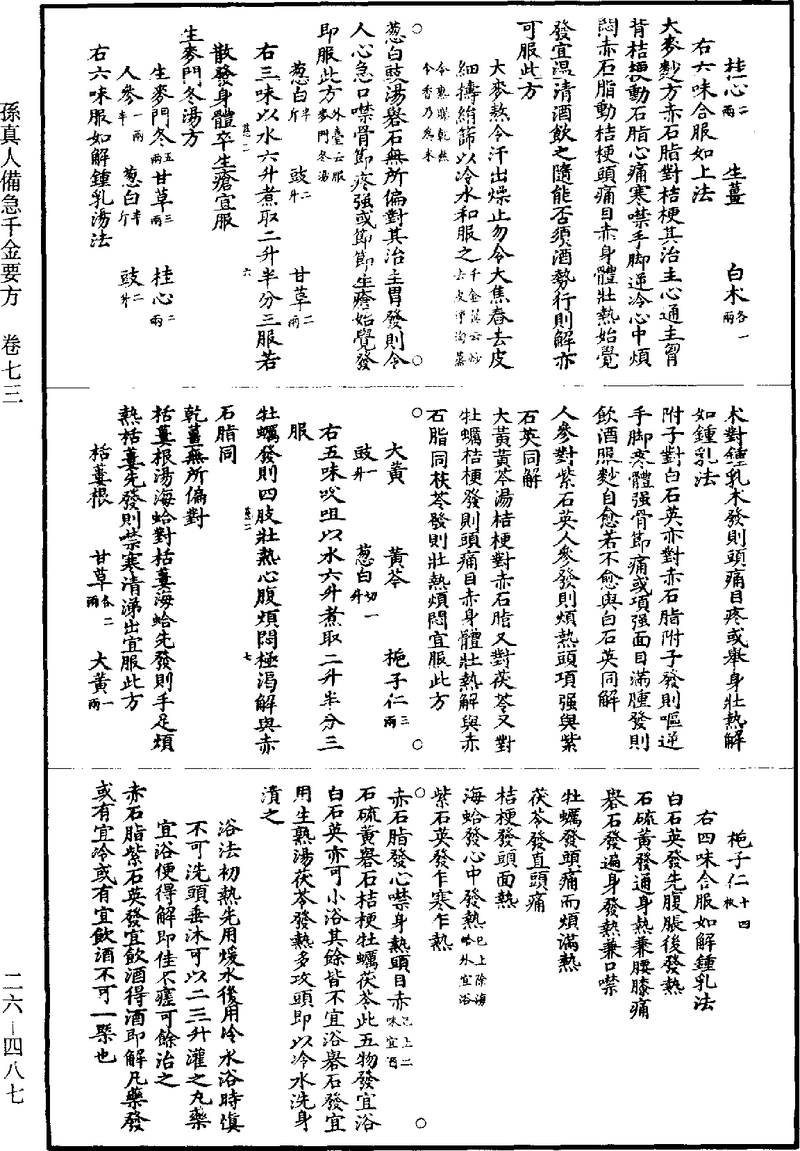 孫真人備急千金要方　卷七三
二六—四八七
桂心二兩　生薑　白朮各一兩
右六味合服如上法
大麥麨方赤石脂對桔梗其治主心通主胃
背桔梗動石脂心痛寒噤手脚逆冷心中煩
悶赤石脂動桔梗頭痛目赤身體壯熱始覺
發宜温清酒飲之隨能否須酒勢行則解亦
可服此方
大麥熬令汗出燥止勿令大焦舂去皮
細擣絹篩以冷水和服之千金翼云炒去皮淨淘蒸
令熟曬乾熬令香乃為末
葱白豉湯礜石無所偏對其治主胃發則令
人心急口噤骨節疼强或節節生瘡始覺發
即服此方外臺云服麥門冬湯
葱白半斤　豉二升　甘草二兩
右三味以水六升煮取二升半分三服若
散發身體卒生瘡宜服
生麥門冬湯方
生麥門冬五兩　甘草三兩　桂心二兩
人參一兩半　葱白半斤　豉二升
右六味服如解鍾乳湯法
朮對鍾乳朮發則頭痛目疼或舉身壯熱解
如鍾乳法
附子對白石英亦對赤石脂附子發則嘔逆
手脚寒體强骨節痛或項强面目滿腫發則
飲酒服麨自愈若不愈與白石英同解
人參對紫石英人參發則煩熱頭項强與紫
石英同解
大黃黃芩湯桔梗對赤石脂又對茯苓又對
牡蠣桔梗發則頭痛目赤身體壯熱解與赤
石脂同茯苓發則壯熱煩悶宜服此方
大黃　黃芩　梔子仁三兩
豉一升　葱白切一升
右五味㕮咀以水六升煮取二升半分三
服
牡蠣發則四肢壯熱心腹煩悶極渴解與赤
石脂同
乾薑無所偏對
栝蔞根湯海蛤對栝蔞海蛤先發則手足煩
熱栝蔞先發則噤寒清涕出宜服此方
栝蔞根　甘草各二兩　大黃一兩
梔子仁十四枚
右四味合服如解鍾乳法
白石英發先腹脹後發熱
石硫黃發通身熱兼腰膝痛
礜石發遍身發熱兼口噤
牡蠣發頭痛而煩滿熱
茯苓發直頭痛
桔梗發頭面熱
海蛤發心中發熱已上除海蛤外宜浴
紫石英發乍寒乍熱
赤石脂發心噤身熱頭目赤已上二味宜酒
石硫黃礜石桔梗牡蠣茯苓此五物發宜浴
白石英亦可小浴其餘皆不宜浴礜石發宜
用生熟湯茯苓發熱多攻頭即以冷水洗身
漬之
浴法初熱先用煖水後用冷水浴時慎
不可洗頭垂沐可以二三升灌之凡藥
宜浴便得解即佳不瘥可餘治之
赤石脂紫石英發宜飲酒得酒即解凡藥發
或有宜冷或有宜飲酒不可一槩也